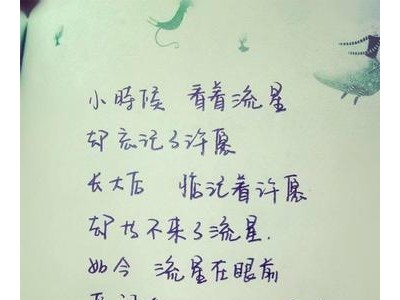 小時候 看着流星
却忘记了许愿
长大后 惦记着许愿
却 不来了流星.
如今 流星在眼前